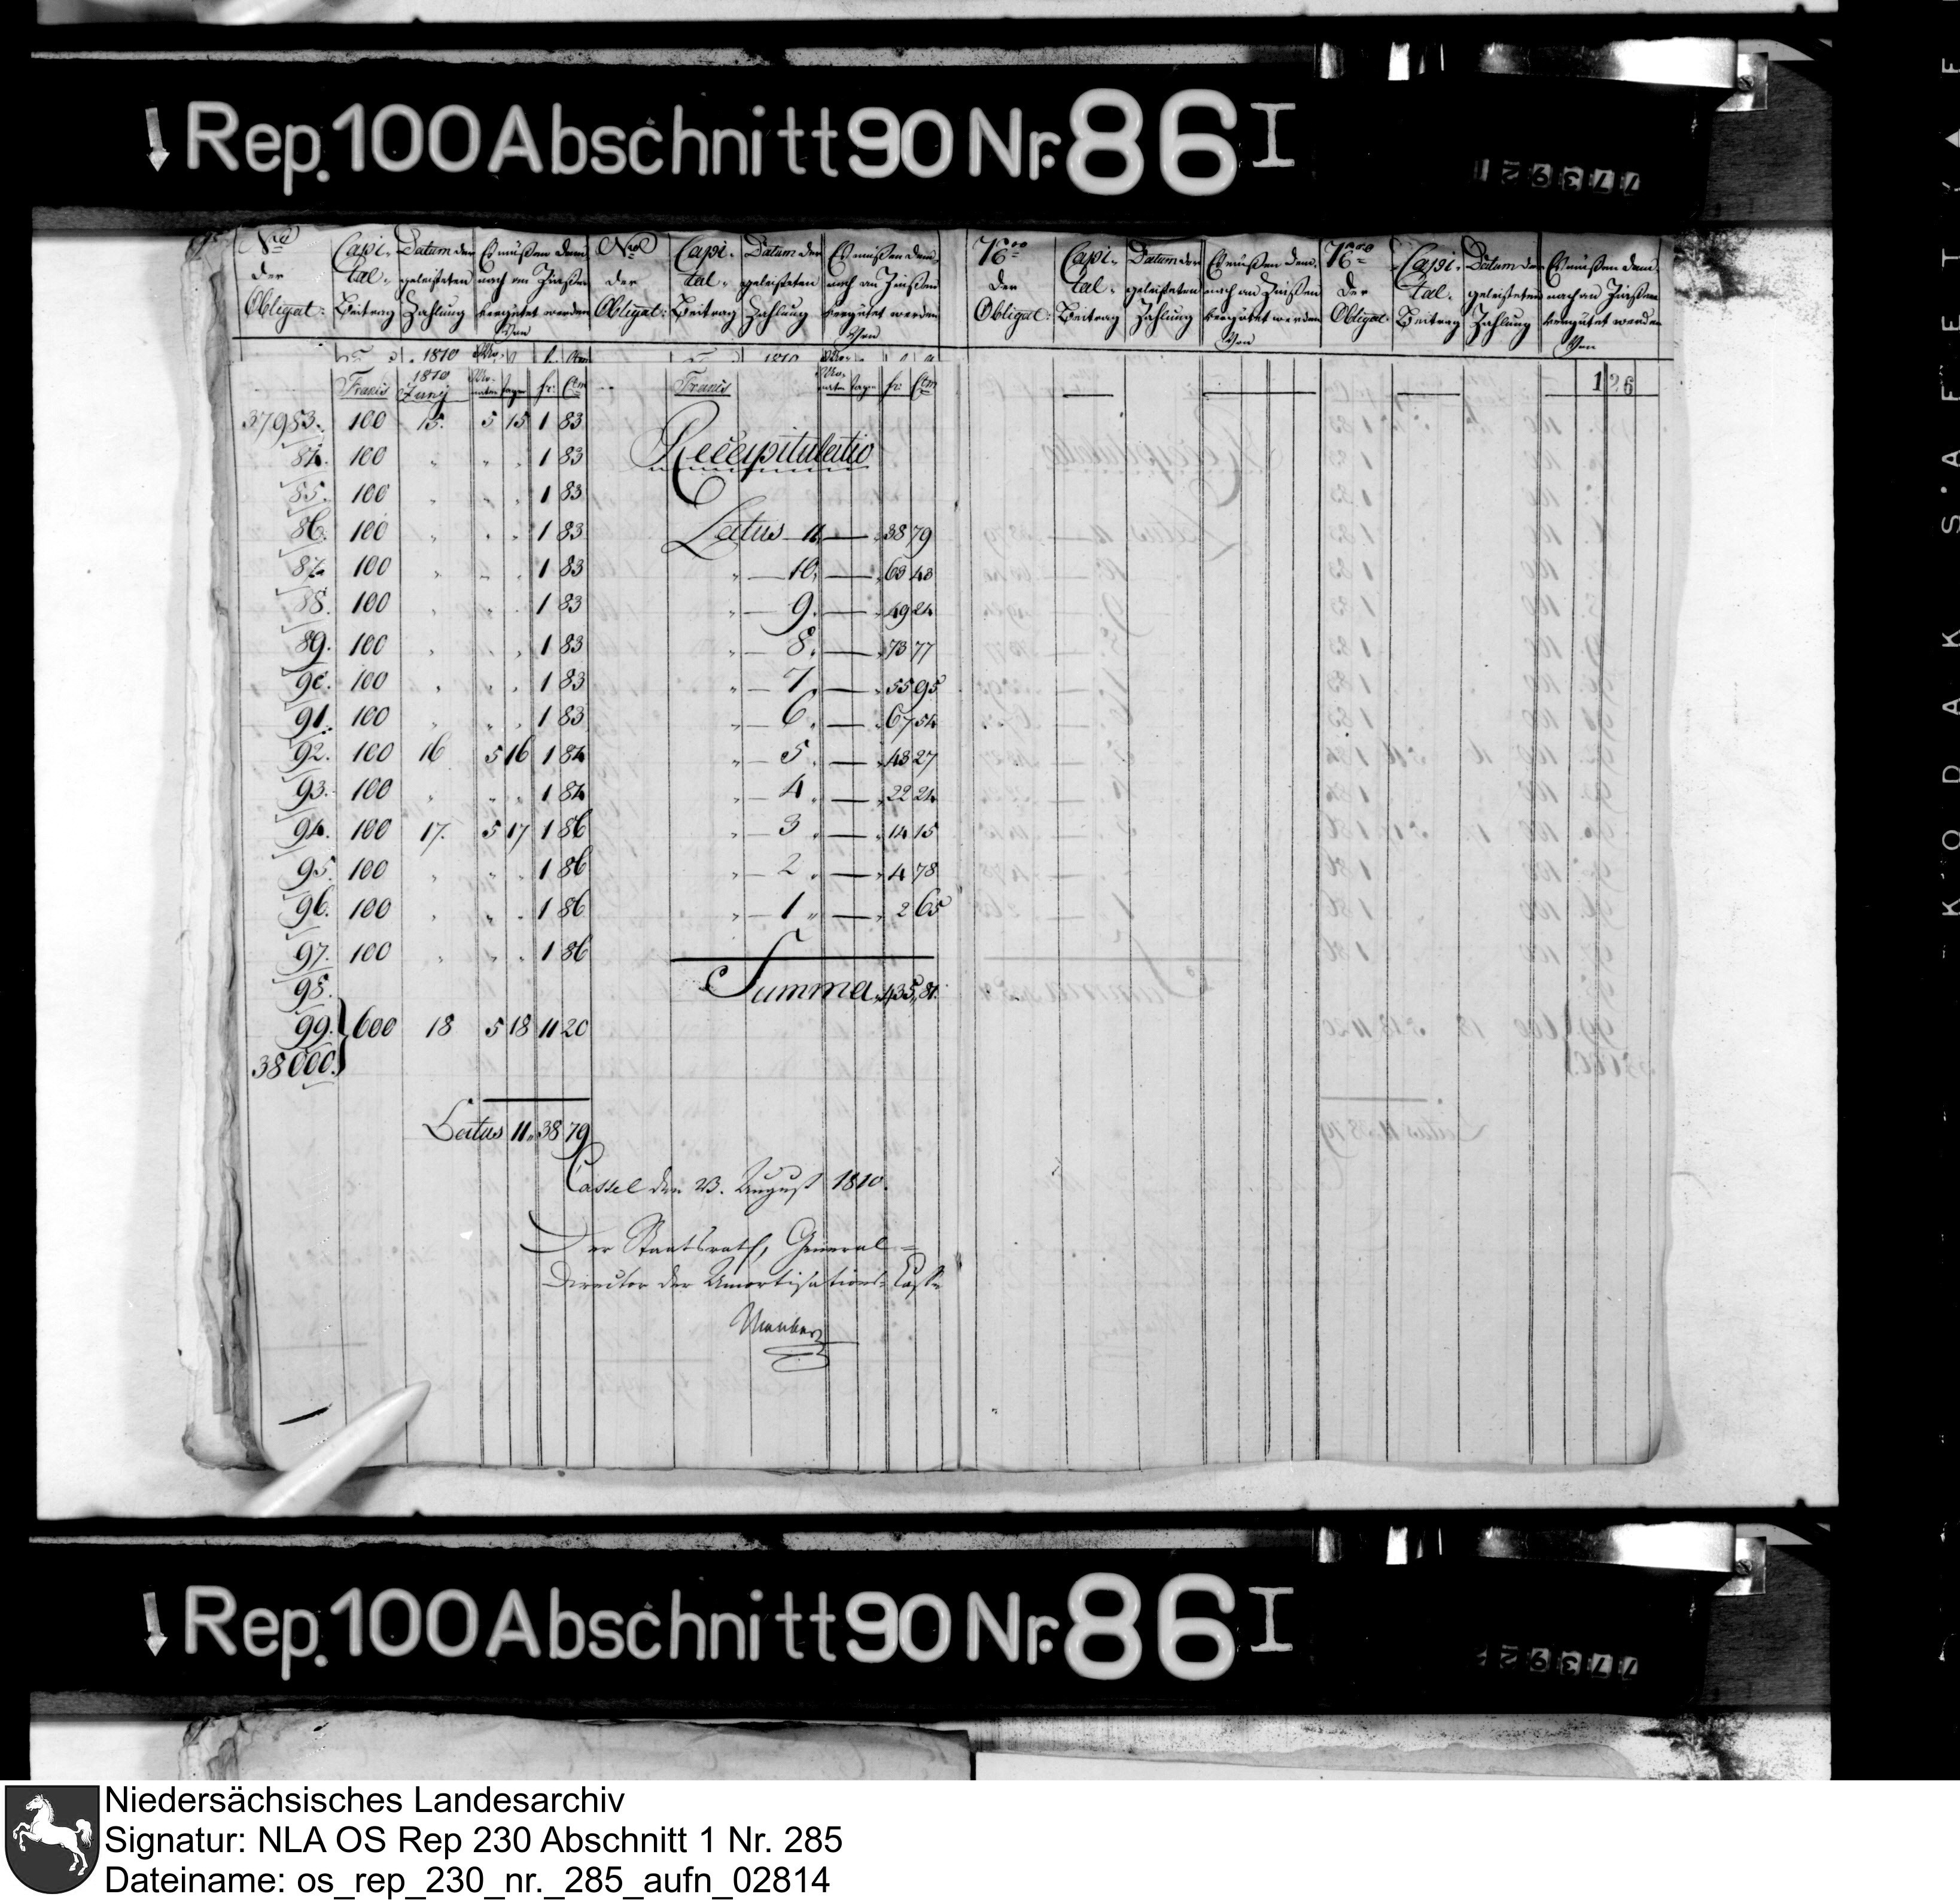 Rep. 100 Abschnitt 90 Nr. 86 I
Nro der Obligat: Capital-Beitrag Datum der geleisteten Zahlung Es müßen demnach an Zinßen vergütet werden Von
Nro der Obligat: Capital-Beitrag Datum der geleisteten Zahlung Es müßen demnach an Zinßen vergütet werden Von
No der Obligat: Capital-Beitrag Datum der geleisteten Zahlung Es müßen demnach an Zinßen vergütet werden Von
No der Obligat: Capital-Beitrag Datum der geleisteten Zahlung Es müßen demnach an Zinßen vergütet werden Von
Francs 1810 Juny Monaten Tagen fr: Ctm
37983. 100 15. 5 15 1 83
84. 100 " " " 1 83
85. 100 " " " 1 83
86. 100 " " " 1 83
87. 100 " " " 1 83
88. 100 " " " 1 83
89. 100 " " " 1 83
90. 100 " " " 1 83
91. 100 " " " 1 83
92. 100 16 5 16 1 84
93. 100 " " " 1 84
94. 100 17. 5 17 1 86
95. 100 " " " 1 86
96. 100 " " " 1 86
97. 100 " " " 1 86
98.
99. } 600 18 5 18 11 20
38000.
Latus 11. 38 79
Francs Monaten Tagen fr: Ctm
Recapitulatio
Latus 11. — 38 79
" — 10. — 63 43
" — 9. — 49 24
" — 8. — 73 77
" — 7. — 55 95
" — 6. — 67 54
" — 5. — 43 27
" — 4. — 22 24
" — 3. — 14 15
" — 2. — 4 78
" — 1. — 2 65
Summa 435, 81.
126
Cassel den 23. August 1810.
Der Staatsrath, General-
Director der Amortisations-Casse
Rep. 100 Abschnitt 90 Nr. 86 I
KODAK SAFETY
Niedersächsisches Landesarchiv
Signatur: NLA OS Rep 230 Abschnitt 1 Nr. 285
Dateiname: os_rep_230_nr._285_aufn_02814